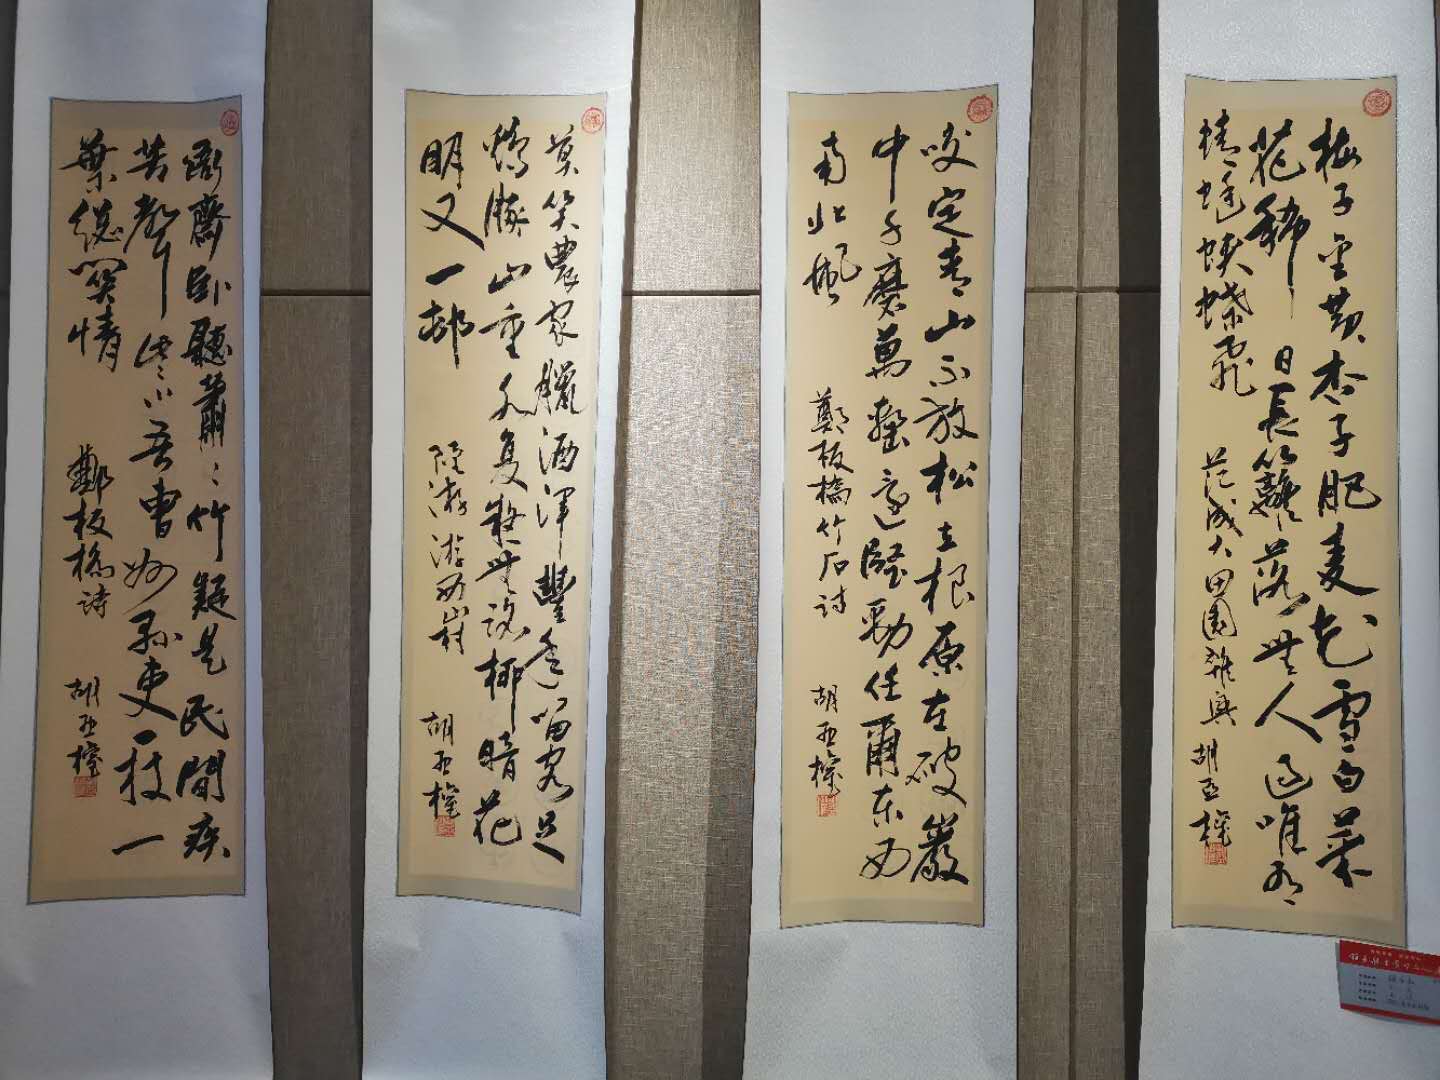 梅子金黄杏子肥麦花雪白菜
花稀日長籬落無人過唯有
蜻蜓蛱蝶飛
范成大田園雜興 胡亞權
咬定青山不放松立根原在破巖
中千磨萬擊還堅勁任爾東西
南北風
鄭板橋竹石詩 胡亞權
莫笑農家臘酒渾豐年留客足
鷄豚山重水復疑無路柳暗花
明又一邨
陸游游西山村 胡亞權
衙齋卧聽蕭蕭竹疑是民間疾
苦聲些小吾曹州縣吏一枝一
葉總関情
鄭板橋詩 胡亞權